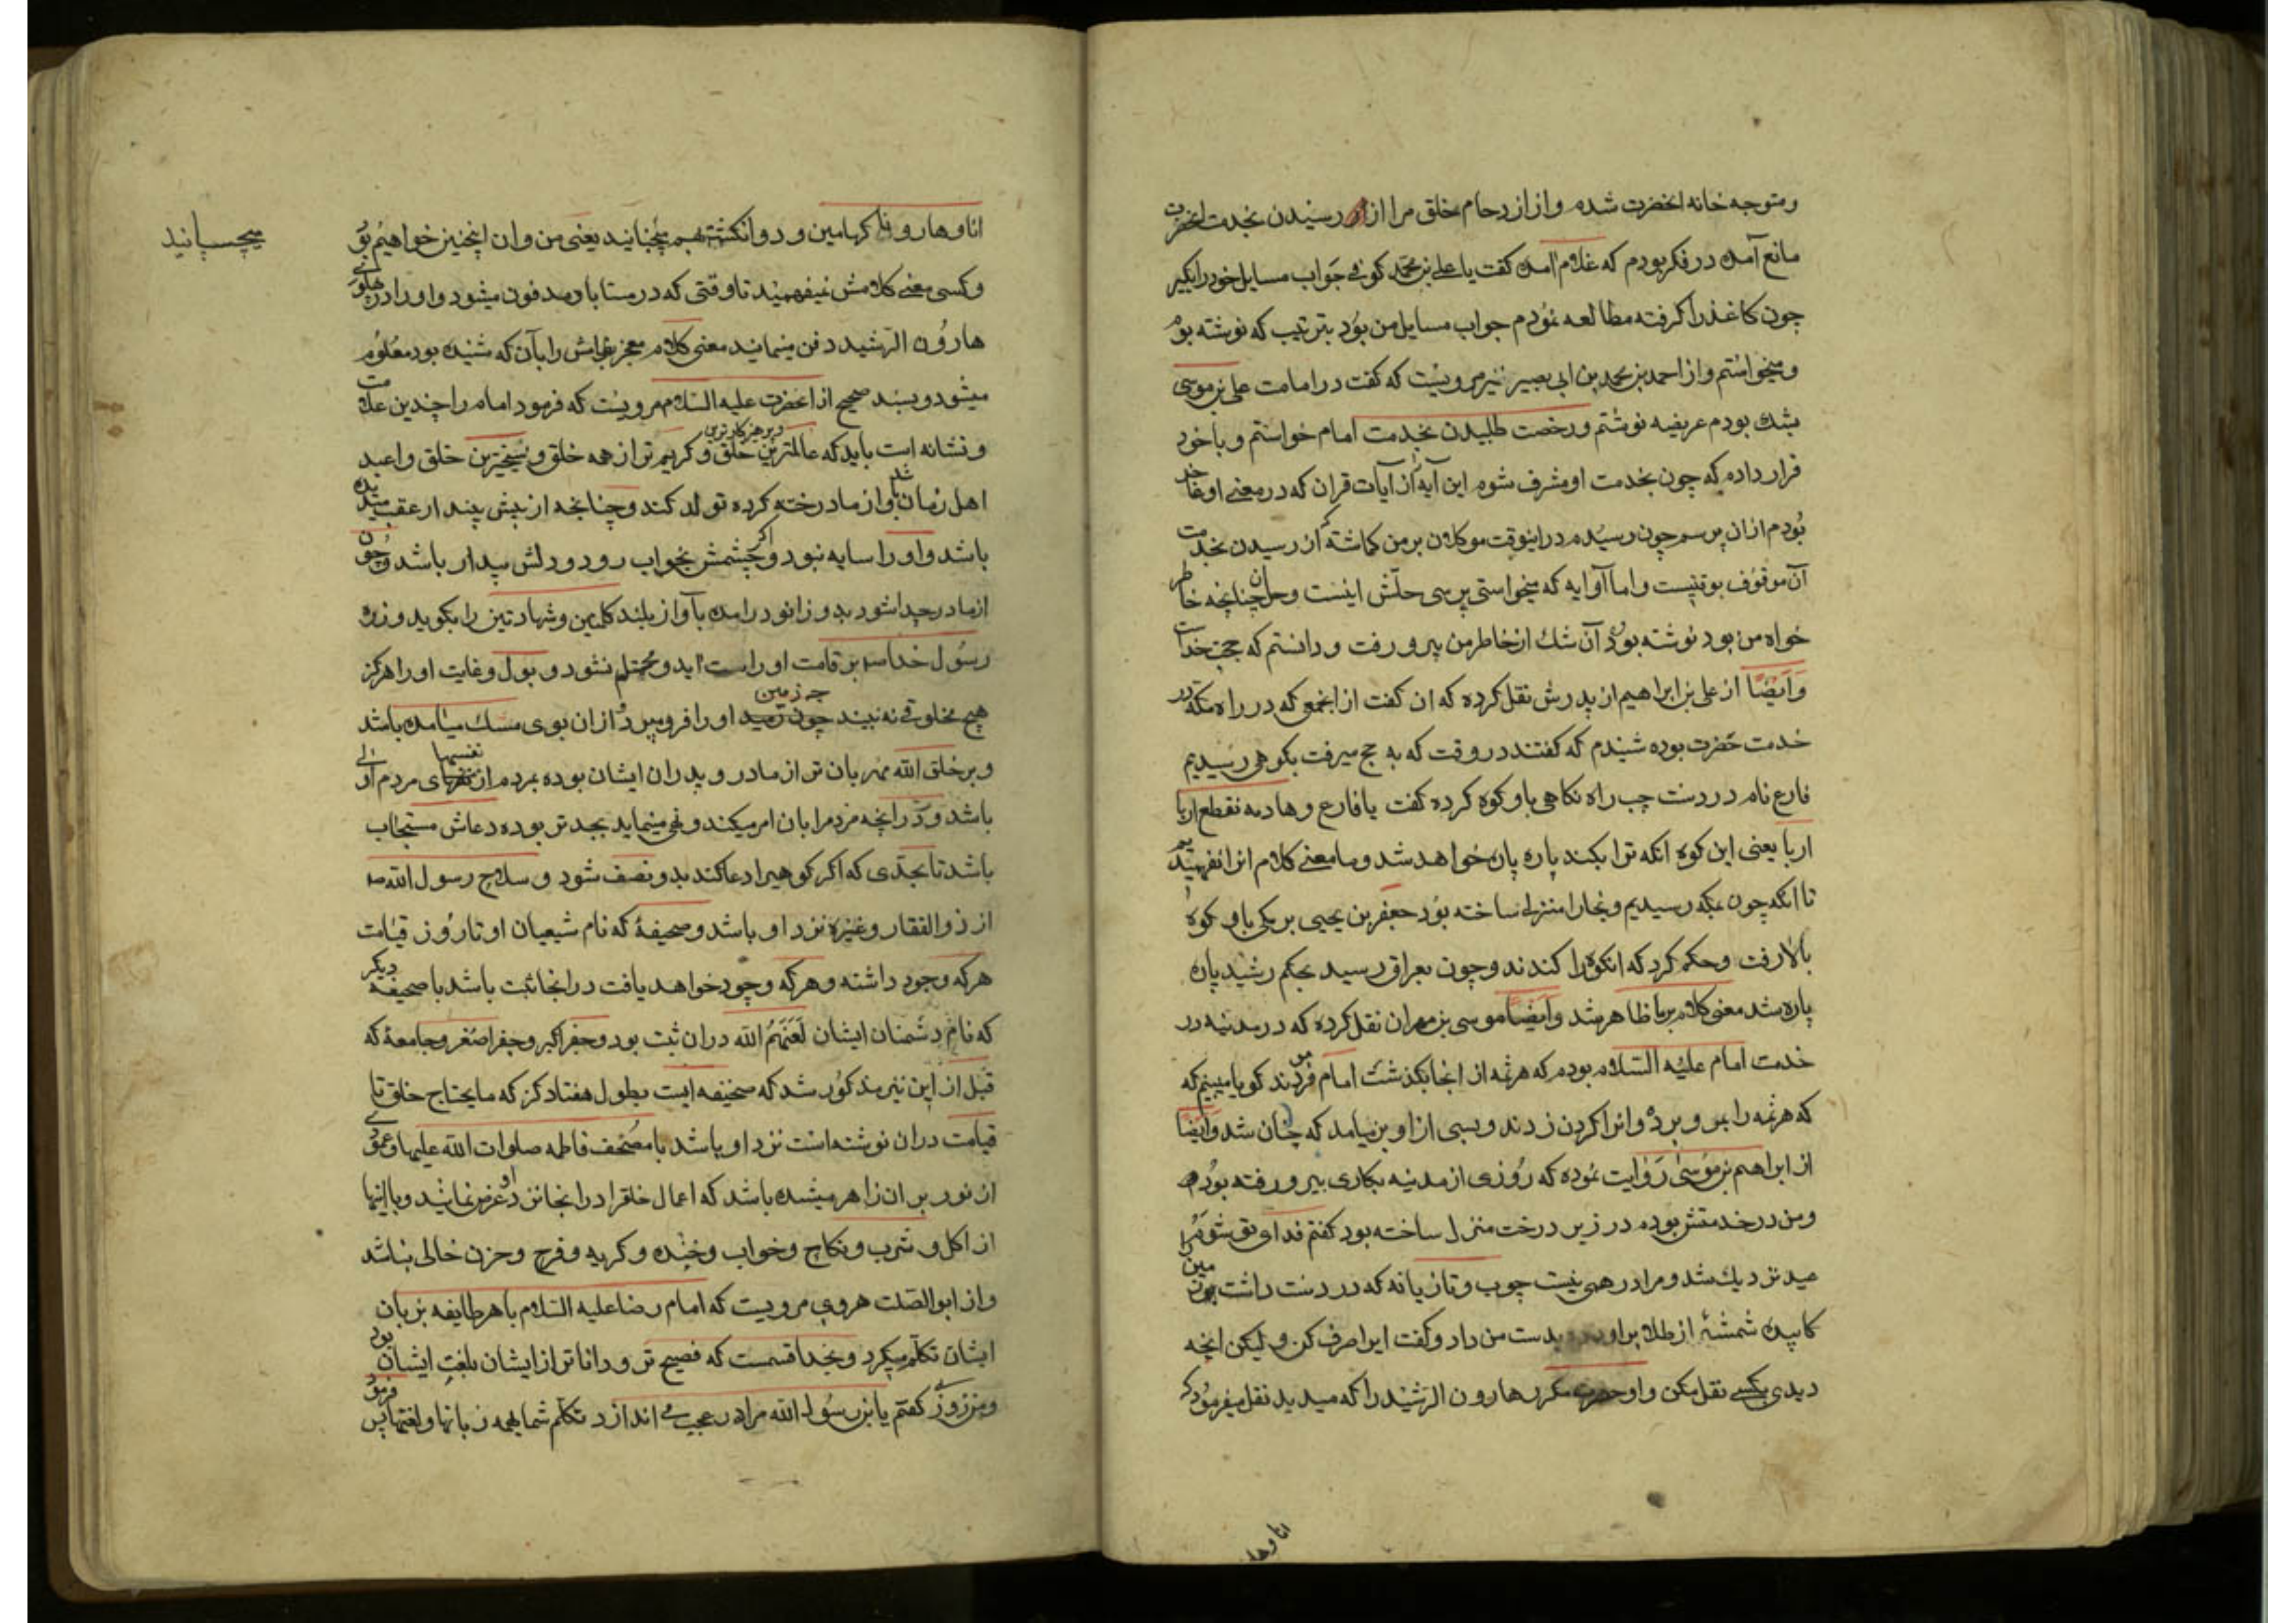 ومتوجه خانه انحضرت شدم واز ازدحام خلق مرا از رسیدن بخدمت انحضرت
مانع آمد در فکر بودم که غلام آمد کفت یا علی بن محمد کوفی جواب مسایل خود را بکیر
چون کاغذ را کرفته مطالعه نمودم جواب مسایل من بود بترتیب که نوشته بود
ومیخواستم واز احمد بن محمد بن ابی بصیر نیز مرویست که کفت در امامت علی بن موسی
بشك بودم عریضه نوشتم ورخصت طلبیدن بخدمت امام خواستم وبا خود
قرار دادم که چون بخدمت او مشرف شوم این آیه از آیات قران که در معنی او
بودم از ان پرسم چون رسیدم در اینوقت موکلان بر من کماشته از رسیدن بخدمت
آن موقوف بوقتیست واما آیه که میخواستی پرسی حلش اینست وحل آن چنانچه خاطر
خواه من بود نوشته بود آن شك از خاطر من بیرو رفت ودانستم که حجت خداست
وایضًا از علی بن ابراهیم از پدرش نقل کرده که ان کفت از انجمعی که در راه مکه در
خدمت حضرت بوده شنیدم که کفتند در وقت که به حج میرفت بکوهی رسیدیم
فارع نام در دست چب راه نکاهی باو کوه کرده کفت یا فارع وهادمه نقطع اربا
اربا یعنی این کوه انکه ترا بکند پاره پاره خواهد شد وما معنی کلام انرا نفهمیدیم
تا انکه چون بمکه رسیدیم ونجارا منزلی ساخته بود جعفر بن یحیی برمکی باو کوه
بالا رفت وحکم کرد که انکوه را کندند وچون بعراق رسید بحکم رشید پاره
پاره شد معنی کلام برما ظاهر شد وایضًا موسی بن مهران نقل کرده که در مدنیه در
خدمت امام علیه السلام بودم که هرثمه از انجا بکذشت امام فرمودند کویا میبینم که
که هرثمه را بمرو برده وانرا کردن زدند وبسی از او بر نیامد که چنان شد وایضًا
از ابراهیم بن موسی روایت نموده که روزی از مدنیه بکاری بیرو رفته بودم
ومن در خدمتش بوده در زیر درخت منزل ساخته بود کفتم فدای تو شوم مرا
عید نزدیك شد ومرا درهمی نیست چوب وتازیانه که در دست داشت بزمین
کابیده شمشهٔ از طلا بر اورده بدست من داد وکفت اینرا صرف کن ولیکن انچه
دیدی بکسی نقل مکن واو حضرت مکرر هارون الرشید را که میدید نقل میفرمود که
انا وها
انا وهارون کهامین ودو انکشت بهم میچنانید یعنی من وان اینچنین خواهیم بود
میچسپانید
وکسی معنی کلامش نمیفهمیند تا وقتی که در سناباد مدفون میشود واو را در پهلوی
هارون الرشید دفن مینمایند معنی کلام معجز بفامش را بآن که شنیده بود معلوم
میشود وبسند صحیح از انحضرت علیه السلام مرویست که فرمود امام را چندین علامت
ونشانه است باید که عالمترین خلق وپرهیزکارترین وکریم تر از همه خلق وسخیترین خلق واعبد
اهل زمان باشد واز مادر ختنه کرده تولد کند وچنانچه از پیش بیند از عقب میدیده
باشد واو را سایه نبود واکر چشمش بخواب رود ودلش بیدار باشد وچون
از مادر جدا شود بدو زانو درامده بآواز بلند کلمهٔ شهادتین را بکوید وزره
رسول خدا ص بر قامت او راست اید ومحتلم نشود وبول وغایت او را هرکز
هیچ مخلوقی نه بیند چه زمین او را فرو میبرد واز ان بوی مسك میامده باشد
وبر خلق الله مهربان تر از مادر وپدران ایشان بوده بمردم از نفسهای مردم اولی
باشد ودر انچه مردم را بان امر میکند ونهی مینماید بجد تر بوده دعاش مستجاب
باشد تا بحدی که اکر کوهیرا دعا کند بدو نصف شود وسلاح رسول الله ص
از ذو الفقار وغیره نزد او باشد وصحیفهٔ که نام شیعیان او تا روز قیامت
هرکه وجود داشته وهرکه وجود خواهد یافت در انجا ثبت باشد با صحیفه دیکر
که نام دشمنان ایشان لعنهم الله دران ثبت بود وجفر اکبر وجفر اصغر وجامعهٔ که
قبل از این نیز مذکور شد که صحیفه ایست بطول هفتاد کز که مایحتاج خلق تا
قیامت دران نوشته است نزد او باشد با مصحف فاطمه صلوات الله علیها وعمودی
از نور بر ان ظاهر میشده باشد که اعمال خلقرا در انجا نزد او عرض نمایند وبا اینها
از اکل وشرب ونکاح وخواب وخنده وکریه وفرح وحزن خالی نباشد
واز ابو الصلت هروی مرویست که امام رضا علیه السلام با هر طایفه بزبان
ایشان تکلم میکرد وبخدا قسمست که فصیح تر ودانا تر از ایشان بلغت ایشان بود
ومن روزی کفتم یا بن رسول الله مرا در عجب می اندازد تکلم شما بهمه زبانها ولغتها پس فرمود